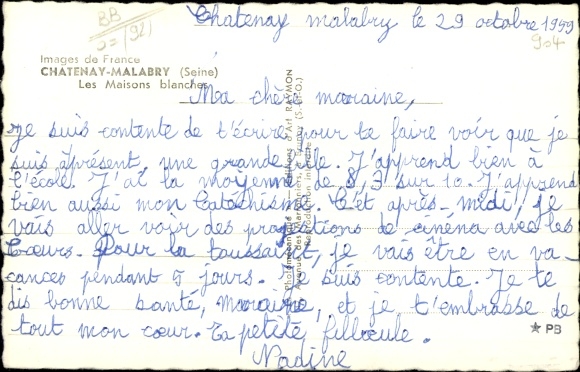 BB
Chatenay malabry le 29 octobre 1959
904
Images de France
CHATENAY-MALABRY (Seine)
Les Maisons blanches
Ma chère marraine,
Je suis contente de t'écrire pour te faire voir que je
suis, àprésent, une grande fille. J'apprend bien à
l'école. J'ai la moyenne de 8,3 sur 10. J'apprend
bien aussi mon Catéchisme. Cet après-midi, je
vais aller voir des projections de cinéma avec les
Cœurs. Pour la toussaint, je vais être en va-
cances pendant 5 jours. Je suis contente. Je te
dis bonne santé, Marraine, et je t'embrasse de
tout mon cœur. Ta petite filloeule.
Nadine
d'Art RAYMON
★ PB